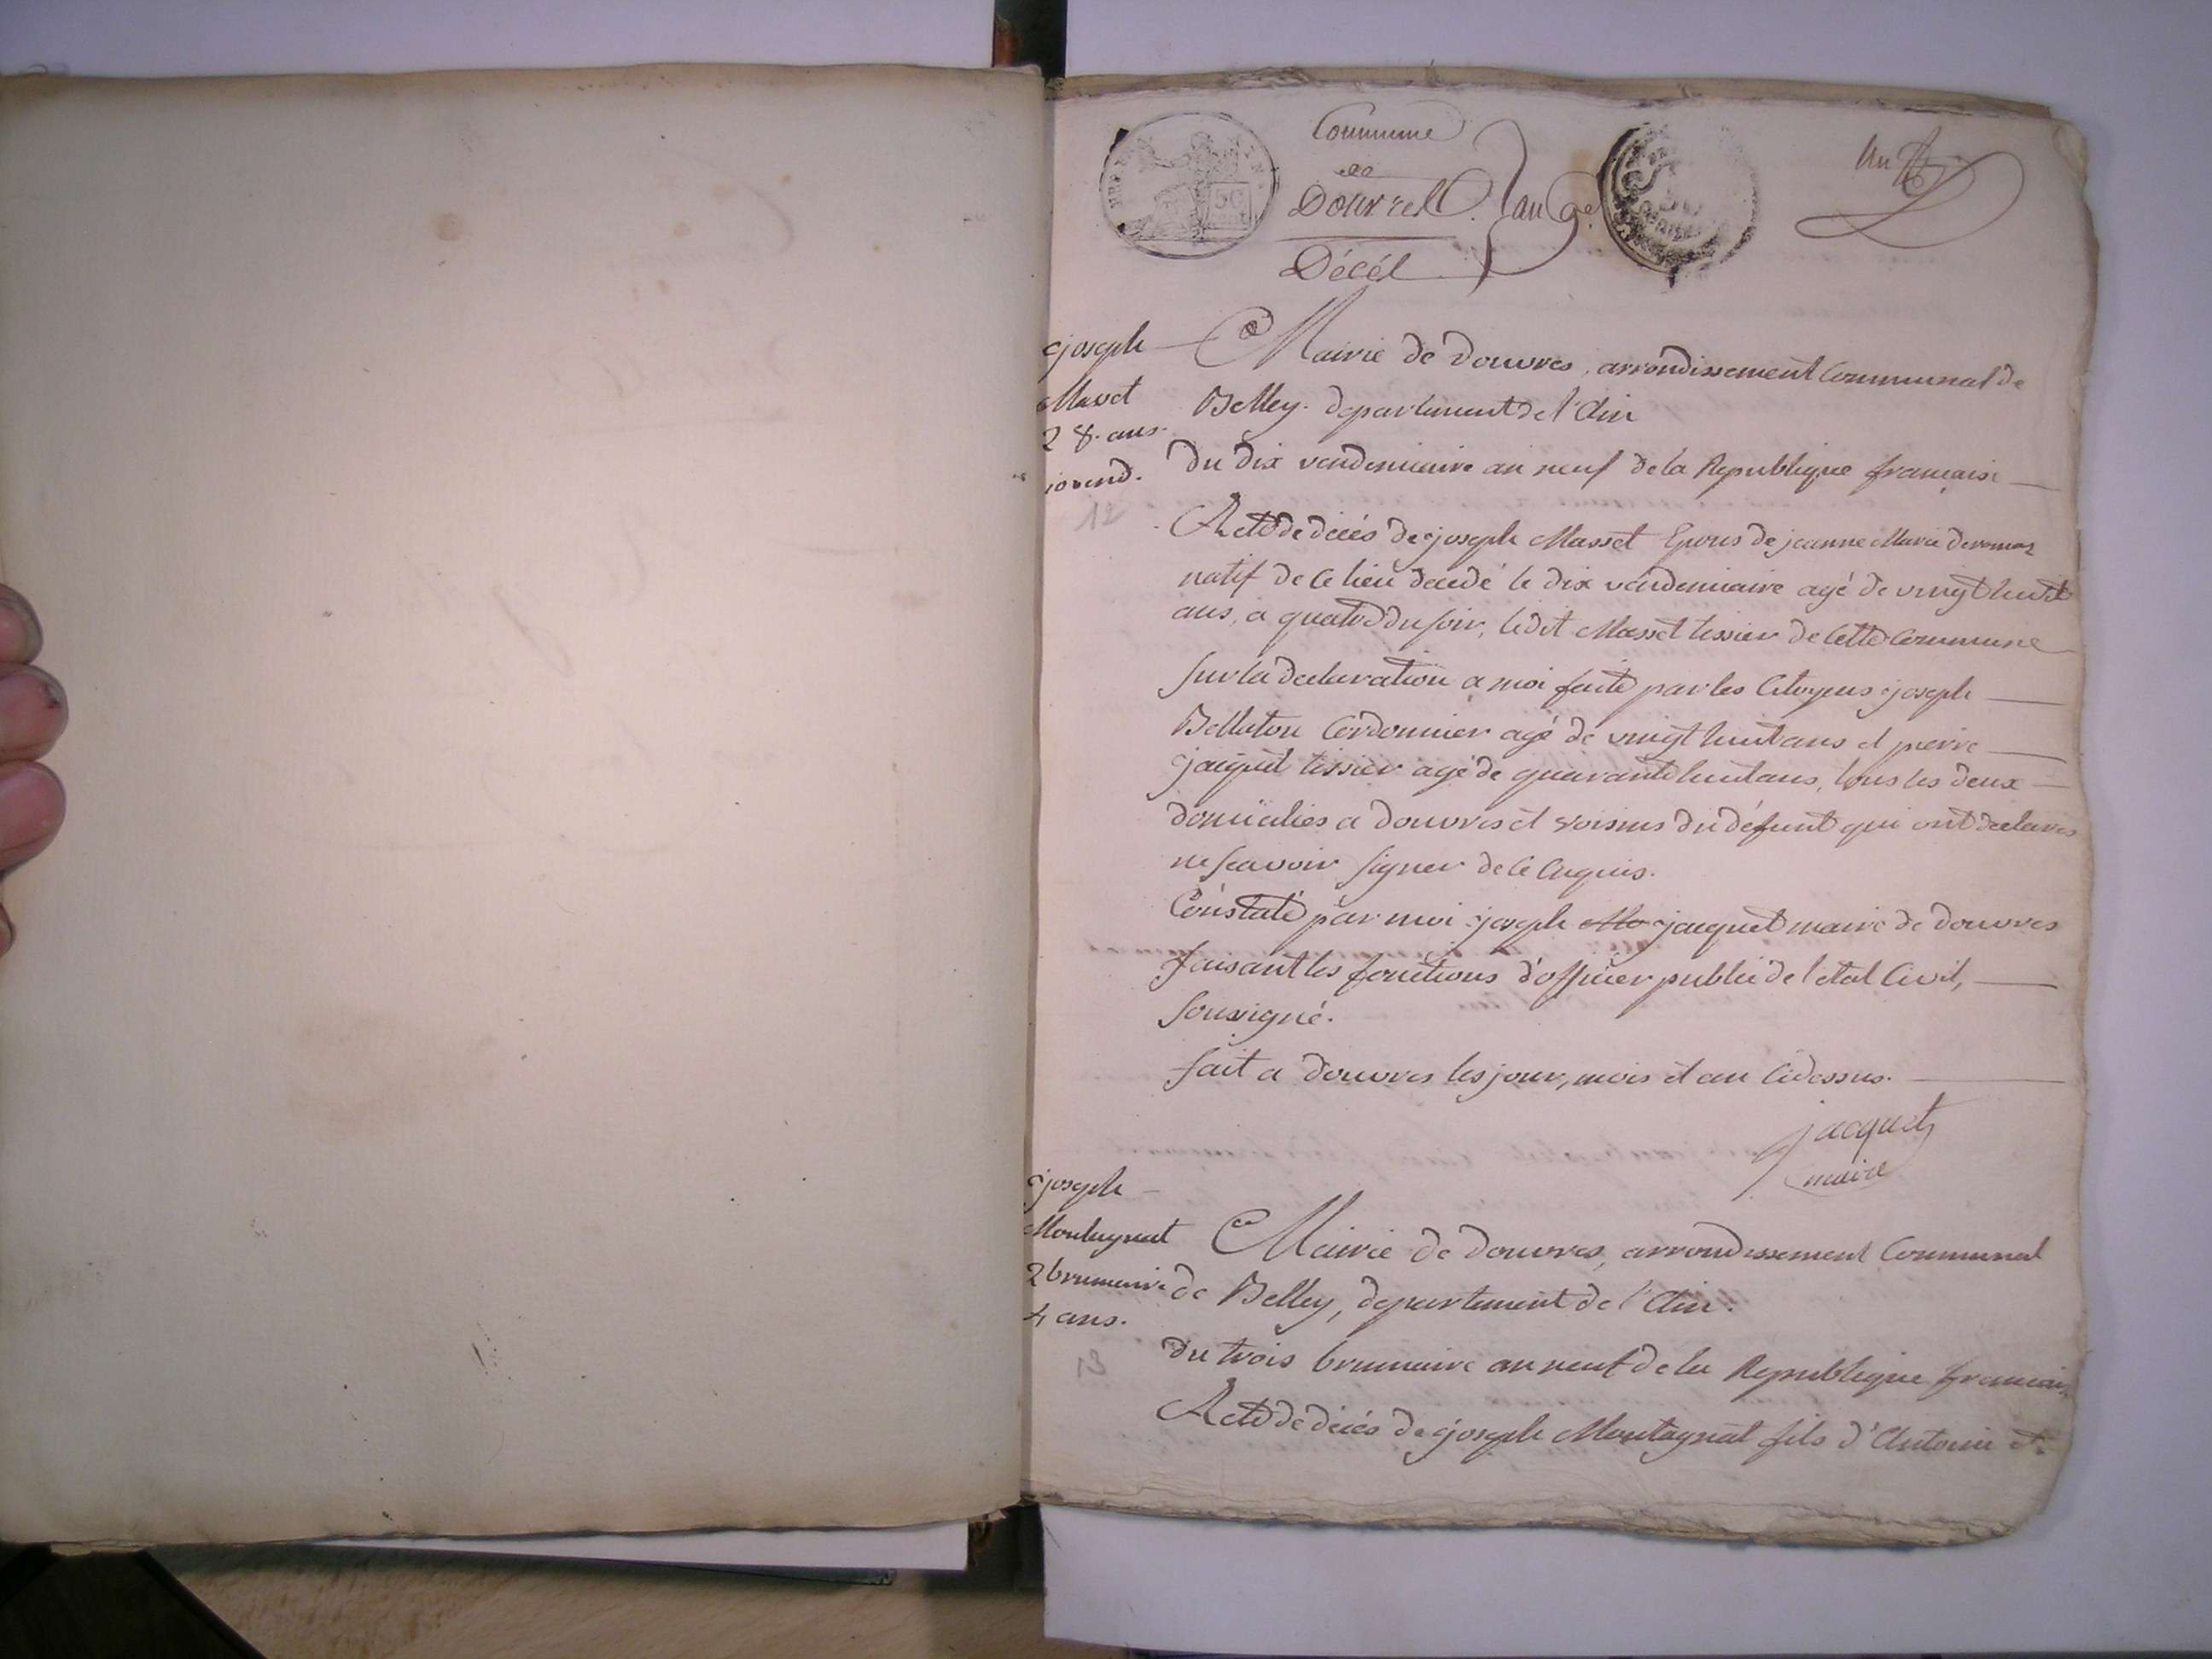 Commune
de
Douvres. an 9e.
Décés
un
50
joseph
Masset
28. ans.
10 vend.
12
Mairie de Douvres, arrondissement Communal de
Belley. departement de l'Ain
du dix vendemiaire an neuf de la Republique francaise
Acte de décés de joseph Masset Epous de jeanne Marie
natif de ce lieu decedé le dix vendemiaire agé de vingt huit
ans, a quatre du soir, ledit Masset tissier de cette commune
sur la declaration a moi faite par les Citoyens joseph
Bellaton Cordonnier agé de vingt huit ans et pierre
jacquet tissier agé de quarante huit ans, tous les deux
domicilies a douvres et voisins du défunt qui ont declares
ne scavoir signer de ce enquis.
Constaté par moi joseph Mo jacquet maire de douvres
faisant les fonctions d'officier public de l'etat Civil,
soussigné.
fait a douvres les jour, mois et an Cidessus.
jacquet
maire
joseph
Montagnat
2 brumaire
4 ans.
13
Mairie de Douvres, arrondissement Communal
de Belley, departement de l'Ain.
du trois brumaire an neuf de la Republique francais
Acte de décés de joseph Montagnat fils d'Antoine et